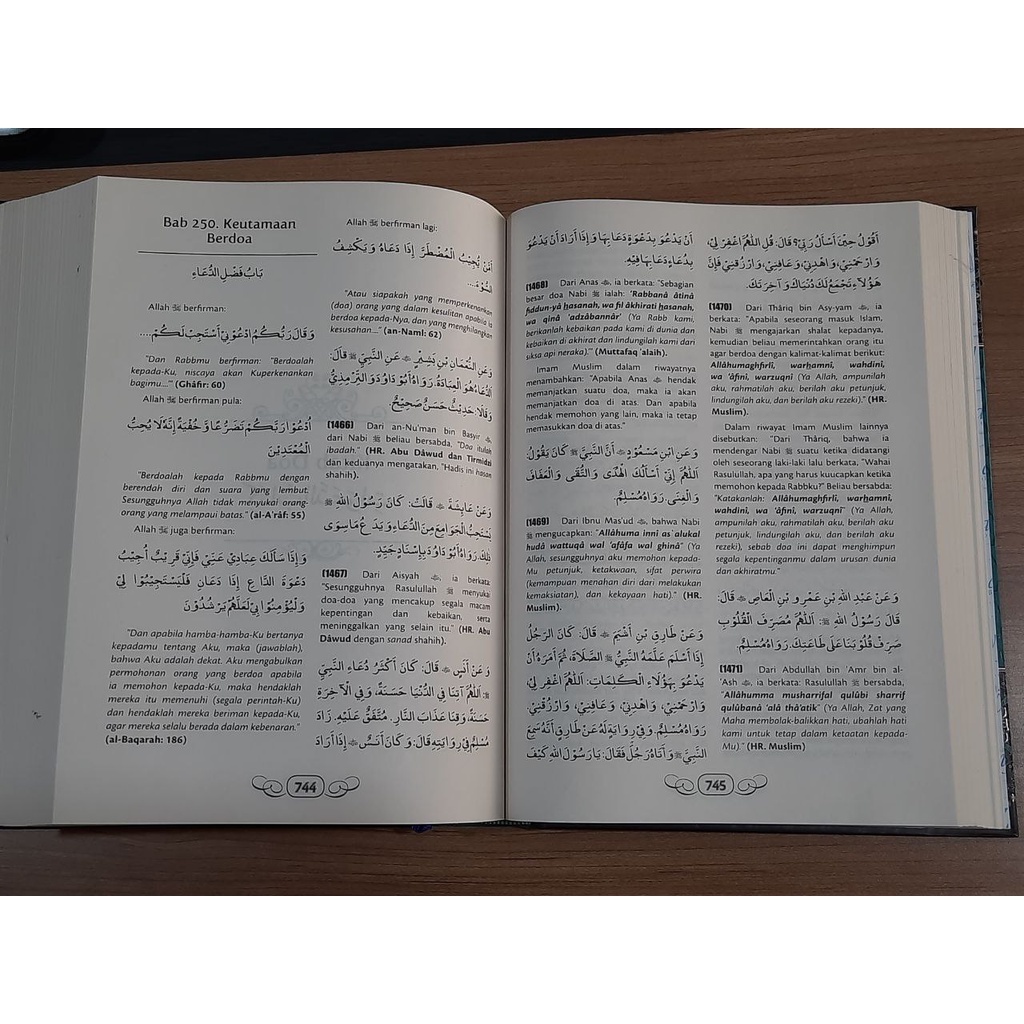 Bab 250. Keutamaan
Berdoa
بَابُ فَضْلِ الدُّعَاءِ
Allah ﷻ berfirman:
وَقَالَ رَبُّكُمُ ادْعُونِيْ أَسْتَجِبْ لَكُمْ....
"Dan Rabbmu berfirman: "Berdoalah
kepada-Ku, niscaya akan Kuperkenankan
bagimu..."" (Ghâfir: 60)
Allah ﷻ berfirman pula:
اُدْعُوْا رَبَّكُمْ تَضَرُّعًا وَخُفْيَةً إِنَّهُ لَا يُحِبُّ
الْمُعْتَدِيْنَ
"Berdoalah kepada Rabbmu dengan
berendah diri dan suara yang lembut.
Sesungguhnya Allah tidak menyukai orang-
orang yang melampaui batas." (al-A'râf: 55)
Allah ﷻ juga berfirman:
وَإِذَا سَأَلَكَ عِبَادِيْ عَنِّيْ فَإِنِّيْ قَرِيْبٌ أُجِيْبُ
دَعْوَةَ الدَّاعِ إِذَا دَعَانِ فَلْيَسْتَجِيْبُوْا لِيْ
وَلْيُؤْمِنُوْا بِيْ لَعَلَّهُمْ يَرْشُدُوْنَ
"Dan apabila hamba-hamba-Ku bertanya
kepadamu tentang Aku, maka (jawablah),
bahwa Aku adalah dekat. Aku mengabulkan
permohonan orang yang berdoa apabila
ia memohon kepada-Ku, maka hendaklah
mereka itu memenuhi (segala perintah-Ku)
dan hendaklah mereka beriman kepada-Ku,
agar mereka selalu berada dalam kebenaran."
(al-Baqarah: 186)
Allah ﷻ berfirman lagi:
أَمَّنْ يُجِيْبُ الْمُضْطَرَّ إِذَا دَعَاهُ وَيَكْشِفُ
السُّوْءَ...
"Atau siapakah yang memperkenankan
(doa) orang yang dalam kesulitan apabila ia
berdoa kepada-Nya, dan yang menghilangkan
kesusahan..." (an-Naml: 62)
وَعَنِ النُّعْمَانِ بْنِ بَشِيْرٍ ﷺ عَنِ النَّبِيِّ ﷺ قَالَ:
الدُّعَاءُ هُوَ الْعِبَادَةُ. رَوَاهُ أَبُوْ دَاوُدَ وَالتِّرْمِذِيُّ
وَقَالَا حَدِيْثٌ حَسَنٌ صَحِيْحٌ
(1466) Dari an-Nu'man bin Basyir
dari Nabi ﷺ beliau bersabda, "Doa itulah
ibadah." (HR. Abu Dâwud dan Tirmidzi
dan keduanya mengatakan, "Hadis ini hasan
shahih).
وَعَنْ عَائِشَةَ قَالَتْ: كَانَ رَسُوْلُ اللهِ ﷺ
يَسْتَحِبُّ الْجَوَامِعَ مِنَ الدُّعَاءِ وَيَدَعُ مَاسِوَى
ذٰلِكَ. رَوَاهُ أَبُوْ دَاوُدَ بِإِسْنَادٍ جَيِّدٍ.
(1467) Dari Aisyah, ia berkata,
"Sesungguhnya Rasulullah ﷺ menyukai
doa-doa yang mencakup segala macam
kepentingan dan kebaikan, serta
meninggalkan yang selain itu." (HR. Abu
Dâwud dengan sanad shahih).
وَعَنْ أَنَسٍ قَالَ: كَانَ أَكْثَرُ دُعَاءِ النَّبِيِّ
ﷺ: اَللّٰهُمَّ آتِنَا فِي الدُّنْيَا حَسَنَةً، وَفِي الْآخِرَةِ
حَسَنَةً، وَقِنَا عَذَابَ النَّارِ. مُتَّفَقٌ عَلَيْهِ. زَادَ
مُسْلِمٌ فِيْ رِوَايَتِهِ قَالَ: وَكَانَ أَنَسٌ إِذَا أَرَادَ
744
أَنْ يَدْعُوَ بِدَعْوَةٍ دَعَا بِهَا وَإِذَا أَرَادَ أَنْ يَدْعُوَ
بِدُعَاءٍ دَعَا بِهَا فِيْهِ.
(1468) Dari Anas, ia berkata: "Sebagian
besar doa Nabi ﷺ ialah: 'Rabbanâ âtinâ
fiddun-yâ hasanah, wa fil âkhirati hasanah,
wa qinâ 'adzâbannâr' (Ya Rabb kami,
berikanlah kebaikan pada kami di dunia dan
kebaikan di akhirat dan lindungilah kami dari
siksa api neraka)." (Muttafaq 'alaih).
Imam Muslim dalam riwayatnya
menambahkan: "Apabila Anas hendak
memanjatkan suatu doa, maka ia akan
memanjatkan doa di atas. Dan apabila
hendak memohon yang lain, maka ia tetap
memasukkan doa di atas."
وَعَنِ ابْنِ مَسْعُوْدٍ أَنَّ النَّبِيَّ ﷺ كَانَ يَقُوْلُ:
اَللّٰهُمَّ إِنِّيْ أَسْأَلُكَ الْهُدَى وَالتُّقَى وَالْعَفَافَ
وَالْغِنَى رَوَاهُ مُسْلِمٌ
(1469) Dari Ibnu Mas'ud, bahwa Nabi
ﷺ mengucapkan: "Allâhuma innî as`alukal
hudâ wattuqâ wal 'afâfa wal ghinâ" (Ya
Allah, sesungguhnya aku memohon kepada-
Mu petunjuk, ketakwaan, sifat perwira
(kemampuan menahan diri dari melakukan
kemaksiatan), dan kekayaan hati)." (HR.
Muslim).
وَعَنْ طَارِقِ بْنِ أَشْيَمَ قَالَ: كَانَ الرَّجُلُ
إِذَا أَسْلَمَ عَلَّمَهُ النَّبِيُّ ﷺ الصَّلَاةَ، ثُمَّ أَمَرَهُ أَنْ
يَدْعُوَ بِهٰؤُلَاءِ الْكَلِمَاتِ. اَللّٰهُمَّ اغْفِرْ لِيْ،
وَارْحَمْنِيْ، وَاهْدِنِيْ، وَعَافِنِيْ، وَارْزُقْنِيْ
رَوَاهُ مُسْلِمٌ. وَفِيْ رِوَايَةٍ لَهُ عَنْ طَارِقٍ أَنَّهُ سَمِعَ
النَّبِيَّ ﷺ وَأَتَاهُ رَجُلٌ فَقَالَ: يَا رَسُوْلَ اللهِ كَيْفَ
أَقُوْلُ حِيْنَ أَسْأَلُ رَبِّيْ؟ قَالَ: قُلِ اللّٰهُمَّ اغْفِرْ لِيْ،
وَارْحَمْنِيْ، وَاهْدِنِيْ، وَعَافِنِيْ، وَارْزُقْنِيْ فَإِنَّ
هٰؤُلَاءِ تَجْمَعُ لَكَ دُنْيَاكَ وَآخِرَتَكَ.
(1470) Dari Thâriq bin Asy-yam, ia
berkata: "Apabila seseorang masuk Islam,
Nabi ﷺ mengajarkan shalat kepadanya,
kemudian beliau memerintahkan orang itu
agar berdoa dengan kalimat-kalimat berikut:
Allâhumaghfirlî, warhamnî, wahdini,
wa 'âfinî, warzuqnî (Ya Allah, ampunilah
aku, rahmatilah aku, berilah aku petunjuk,
lindungilah aku, dan berilah aku rezeki)." (HR.
Muslim).
Dalam riwayat Imam Muslim lainnya
disebutkan: "Dari Thâriq, bahwa ia
mendengar Nabi ﷺ suatu ketika didatangi
oleh seseorang laki-laki lalu berkata, "Wahai
Rasulullah, apa yang harus kuucapkan ketika
memohon kepada Rabbku?" Beliau bersabda:
"Katakanlah: Allâhumaghfirlî, warhamnî,
wahdini, wa 'âfinî, warzuqnî" (Ya Allah,
ampunilah aku, rahmatilah aku, berilah aku
petunjuk, lindungilah aku, dan berilah aku
rezeki), sebab doa ini dapat menghimpun
segala kepentinganmu dalam urusan dunia
dan akhiratmu."
وَعَنْ عَبْدِ اللهِ بْنِ عَمْرِو بْنِ الْعَاصِ قَالَ:
قَالَ رَسُوْلُ اللهِ ﷺ: اَللّٰهُمَّ مُصَرِّفَ الْقُلُوْبِ
صَرِّفْ قُلُوْبَنَا عَلَى طَاعَتِكَ. رَوَاهُ مُسْلِمٌ.
(1471) Dari Abdullah bin 'Amr bin al-
'Ash, ia berkata: Rasulullah ﷺ bersabda,
"Allâhumma musharrifal qulûbi sharrif
qulûbanâ 'alâ thâ'atik" (Ya Allah, Zat yang
Maha membalak-balikkan hati, ubahlah hati
kami untuk tetap dalam ketaatan kepada-
Mu)." (HR. Muslim)
745